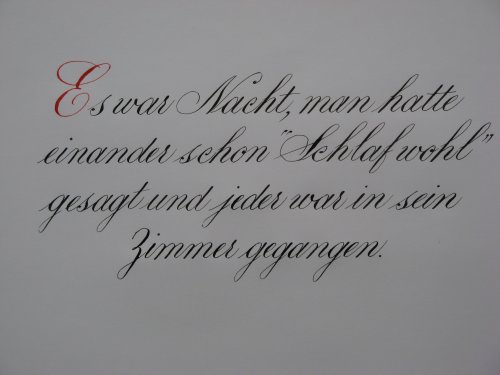 Es war Nacht, man hatte
einander schon "Schlaf wohl"
gesagt und jeder war in sein
Zimmer gegangen.